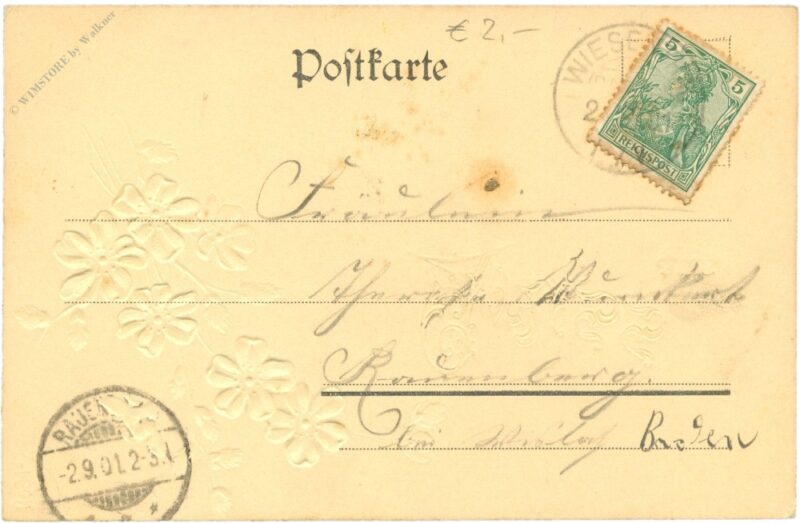 © WIMSTORE by Walkner
€ 2,-
Postkarte
WIESE
5 5
REICHSPOST
2
Fräulein
Therese
Rauenberg.
bei Baden
RAUEN
-2.9.01.2-3.